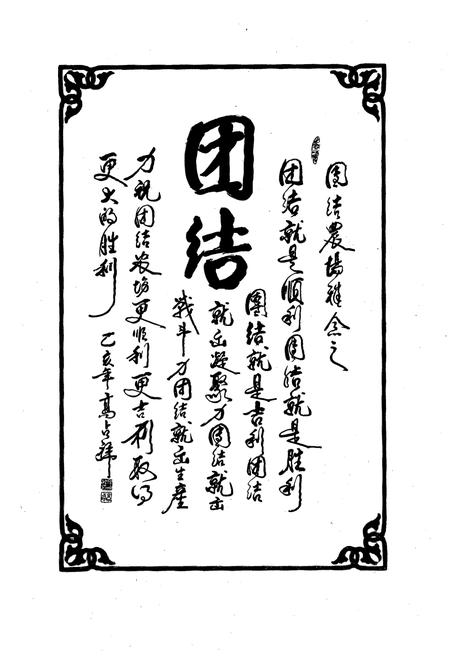 團结農場雅念之
团结就是順利團结就是胜利
团结
團结就是吉利团结
就出凝聚力團结就出
战斗力团结就出生產
力祝团结农场更顺利更吉利取得
更大的胜利
乙亥年高占祥